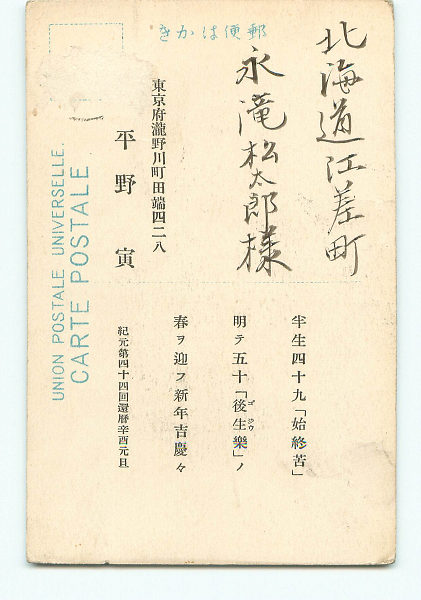 郵便はかき
北海道江差町
永滝松太郎様
東京府瀧野川町田端四二八
平野寅
半生四十九「始終苦」
明テ五十「後生樂」ノ
ゴ ジウ
春ヲ迎フ新年吉慶々
紀元第四十四回還暦辛酉元旦
UNION POSTALE UNIVERSELLE.
CARTE POSTALE